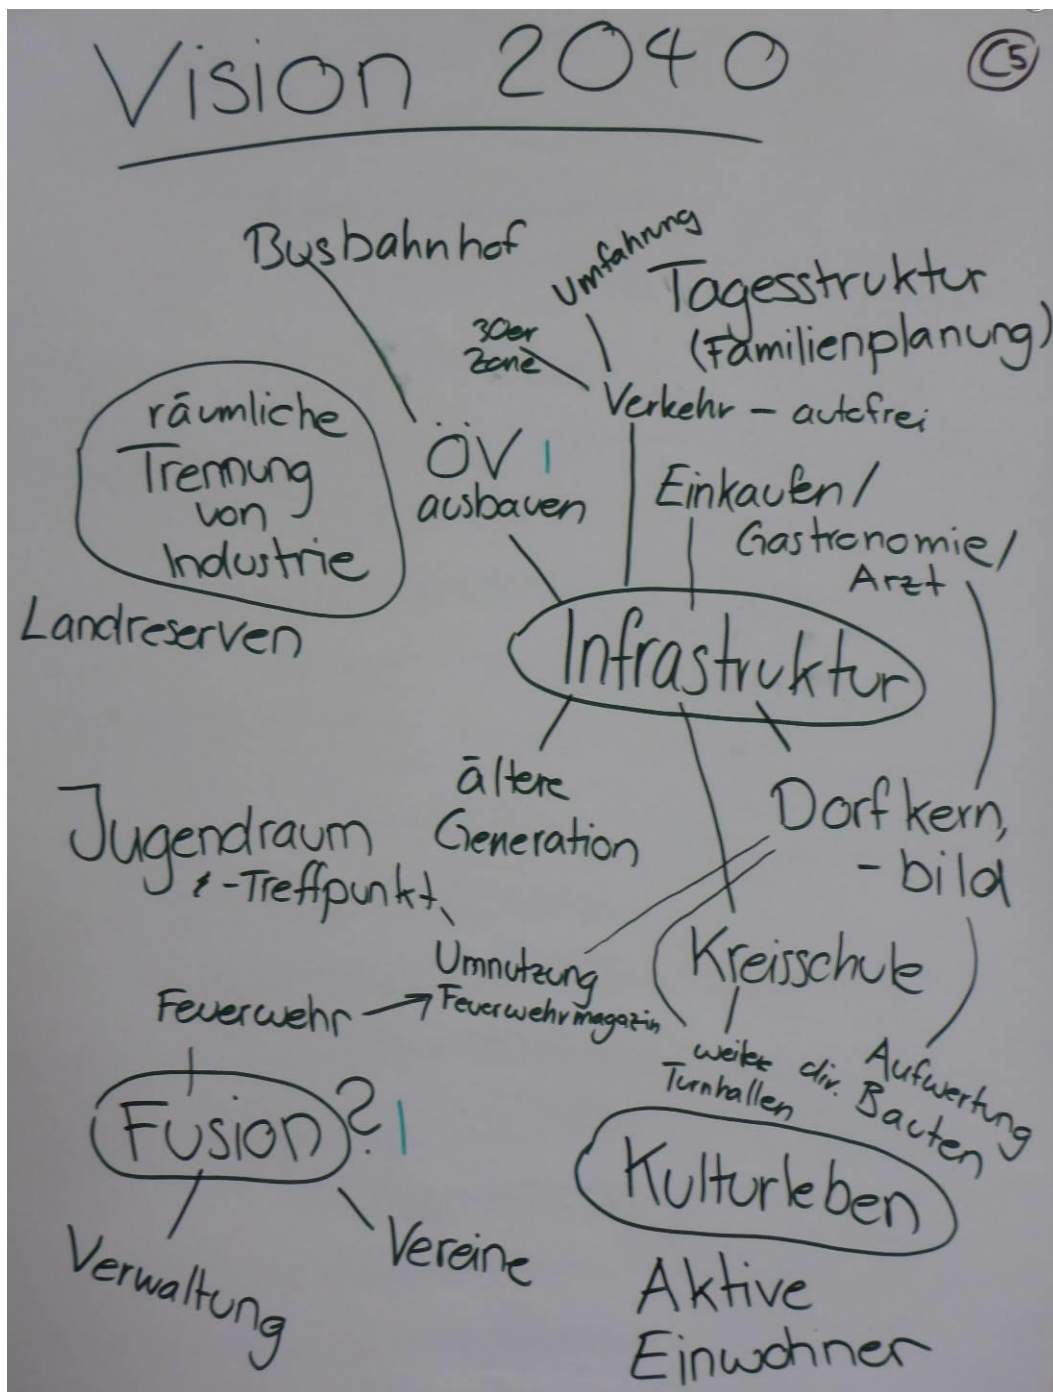 Vision 2040
C5
Busbahnhof
Umfahrung
Tagesstruktur
(Familienplanung)
30er
Zone
Verkehr - autofrei
räumliche
Trennung
von
Industrie
ÖV
ausbauen
Einkaufen /
Gastronomie /
Arzt
Landreserven
Infrastruktur
ältere
Generation
Dorfkern,
- bild
Jugendraum
& -Treffpunkt
Umnutzung
Feuerwehrmagazin
Kreisschule
Feuerwehr
weitere
Turnhallen
Aufwertung
div. Bauten
Fusion ?
Kulturleben
Verwaltung
Vereine
Aktive
Einwohner